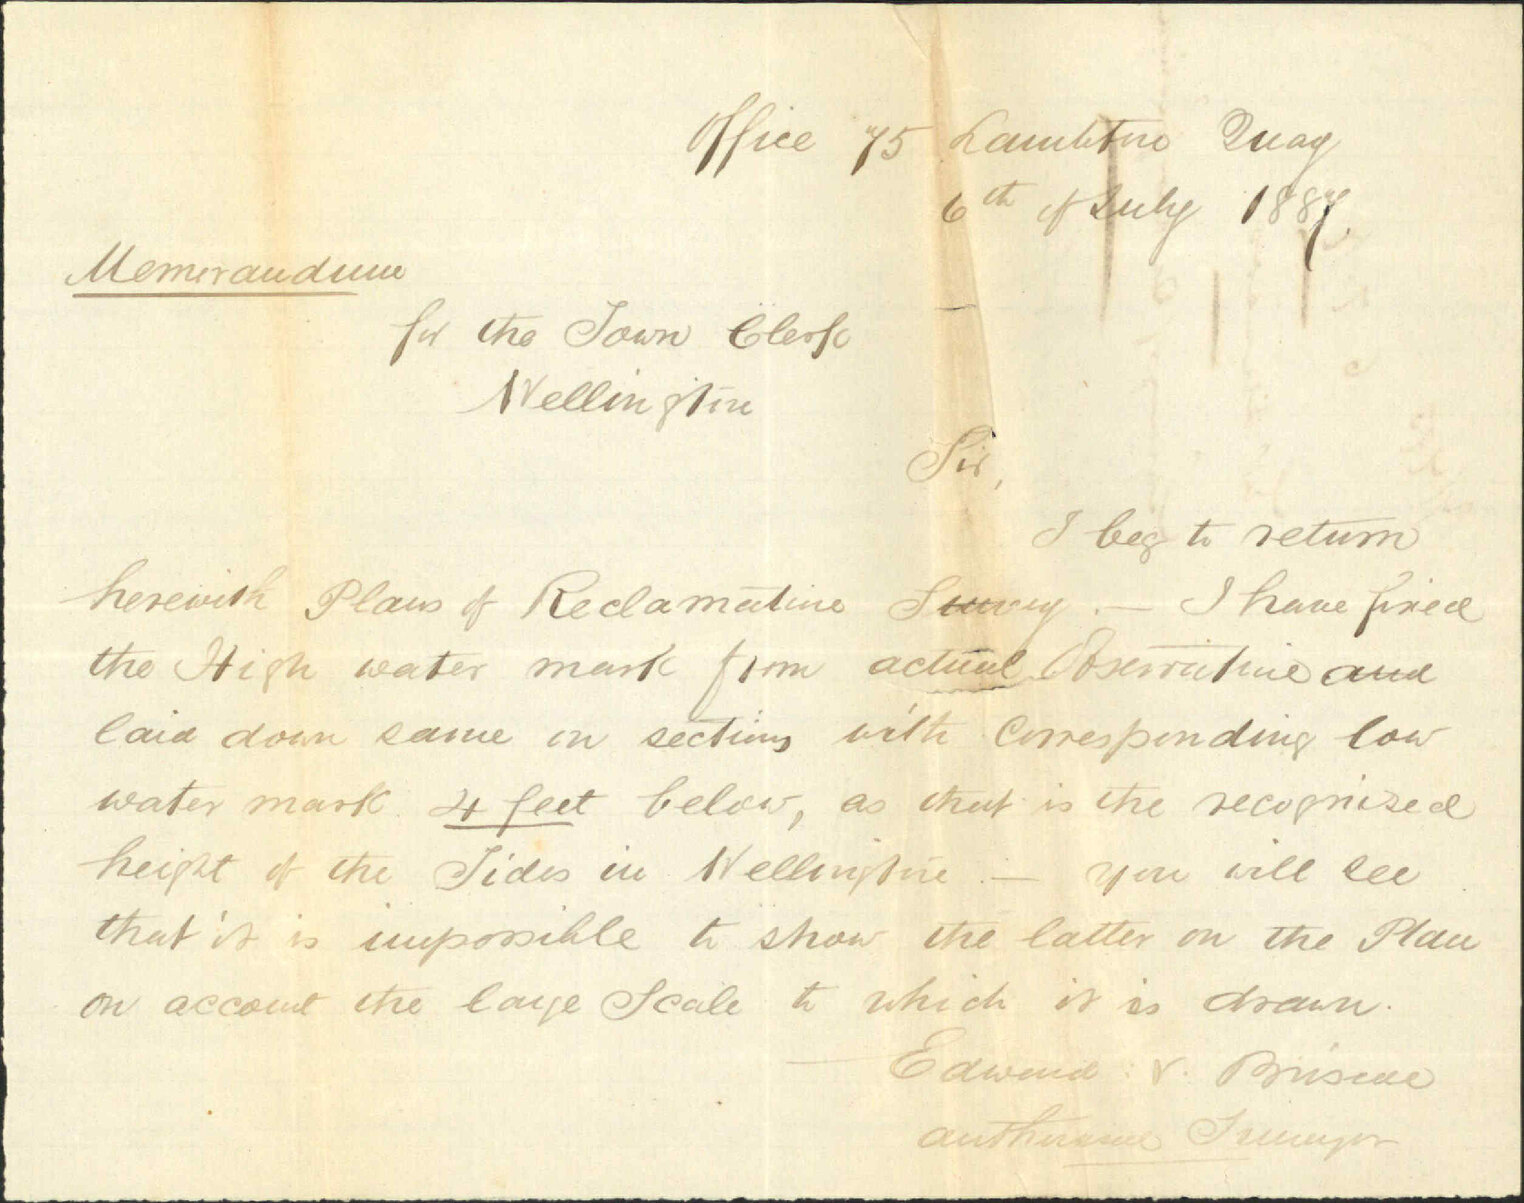 Office 75 Lambton Quay
6th of July 1887.
Memorandum
for the Town Clerk
Wellington
Sir,
I beg to return
herewith Plans of Reclamation Survey. — I have fixed
the High water mark from actual Observation and
laid down same on sections with Corresponding low
water mark 4 feet below, as that is the recognised
height of the Tides in Wellington. — You will see
that it is impossible to show the latter on the Plan
on account the large Scale to which it is drawn.
Edward V. Briscoe
Authorised Surveyor